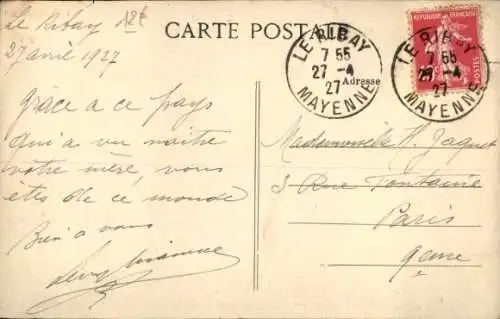 Le Ribay
12f
27 avril 1927
Grâce a ce pays
qui a vu naitre
votre mère, vous
êtes de ce monde
Bien a vous
CARTE POSTALE
Adresse
LE RIBAY
7 55
27 -4
27
MAYENNE
RÉPUBLIQUE FRANÇAISE
POSTES
LE RIBAY
7 55
27 -4
27
MAYENNE
Mademoiselle H. Jaquet
3 Rue Fontaine
Paris
9eme